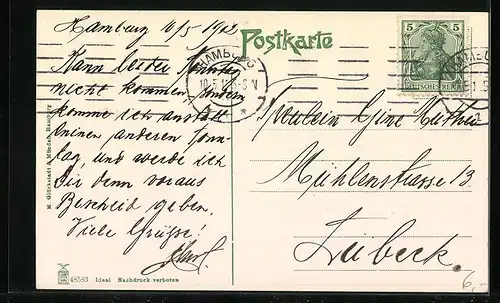 Hamburg 10/5 1912
Postkarte
Kann leider Sonntag
nicht kommen, sondern
komme ich anstatt
einen anderen Sonn-
tag, und werde ich
Dir denn voraus
Bescheid geben.
Viele Grüsse!
HAMBURG
10.5.12. 5-6 N
5 5
DEUTSCHES REICH
HAMBURG
Fräulein
Mühlenstrasse 13
Lübeck.
M. Glückstadt & Münden, Hamburg
48583 Ideal Nachdruck verboten
6,-